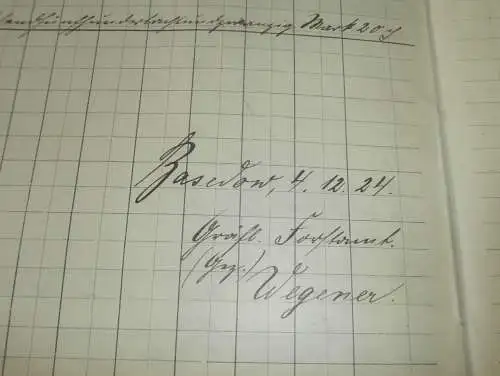 Mark 20 ₰
Basedow, 4. 12. 24.
Gräfl. Forstamt.
(Gez.)
Wegener.